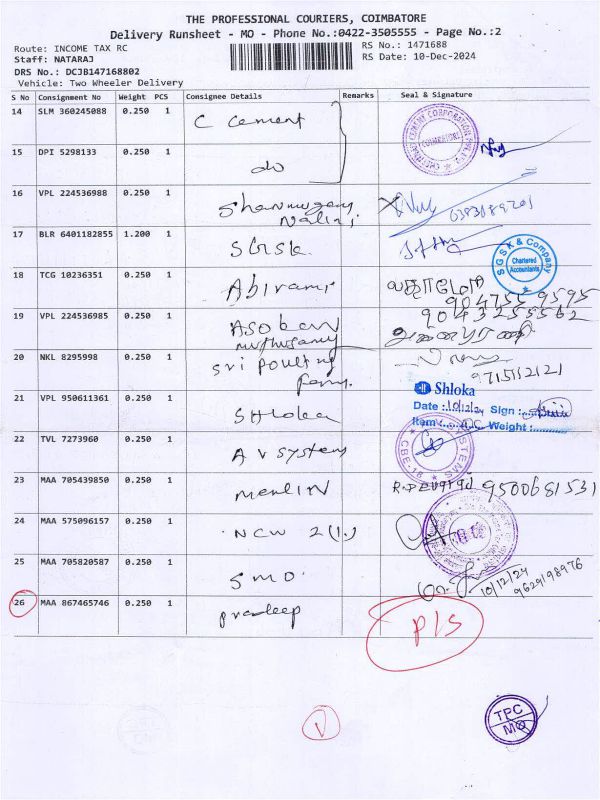 THE PROFESSIONAL COURIERS, COIMBATORE
Delivery Runsheet - MO - Phone No.:0422-3505555 - Page No.:2
Route: INCOME TAX RC
RS No.: 1471688
Staff: NATARAJ
RS Date: 10-Dec-2024
DRS No.: DCJB147168802
Vehicle: Two Wheeler Delivery
S No Consignment No Weight PCS Consignee Details Remarks Seal & Signature
14 SLM 360245088 0.250 1 C Cement
15 DPI 5298133 0.250 1 do
16 VPL 224536988 0.250 1 Shanmugam
Nalini
17 BLR 6401182855 1.200 1 SGSK
SGSK & Company
Chartered
Accountants
18 TCG 10236351 0.250 1 Abirami
90475 59595
19 VPL 224536985 0.250 1 Asokan
muthusamy
9043255562
20 NKL 8295998 0.250 1 Sri poultry
farm
9715112121
21 VPL 950611361 0.250 1 SHLoka
Shloka
Date :10/12/24 Sign :
Item : Weight :
22 TVL 7273960 0.250 1 A V System
SYSTEMS
CBE-18
23 MAA 705439850 0.250 1 merLIN 9500681531
24 MAA 575096157 0.250 1 NCW 2(1.)
25 MAA 705820587 0.250 1 SMO
10/12/24
9629198976
26 MAA 867465746 0.250 1 pradeep P/S
TPC
MO